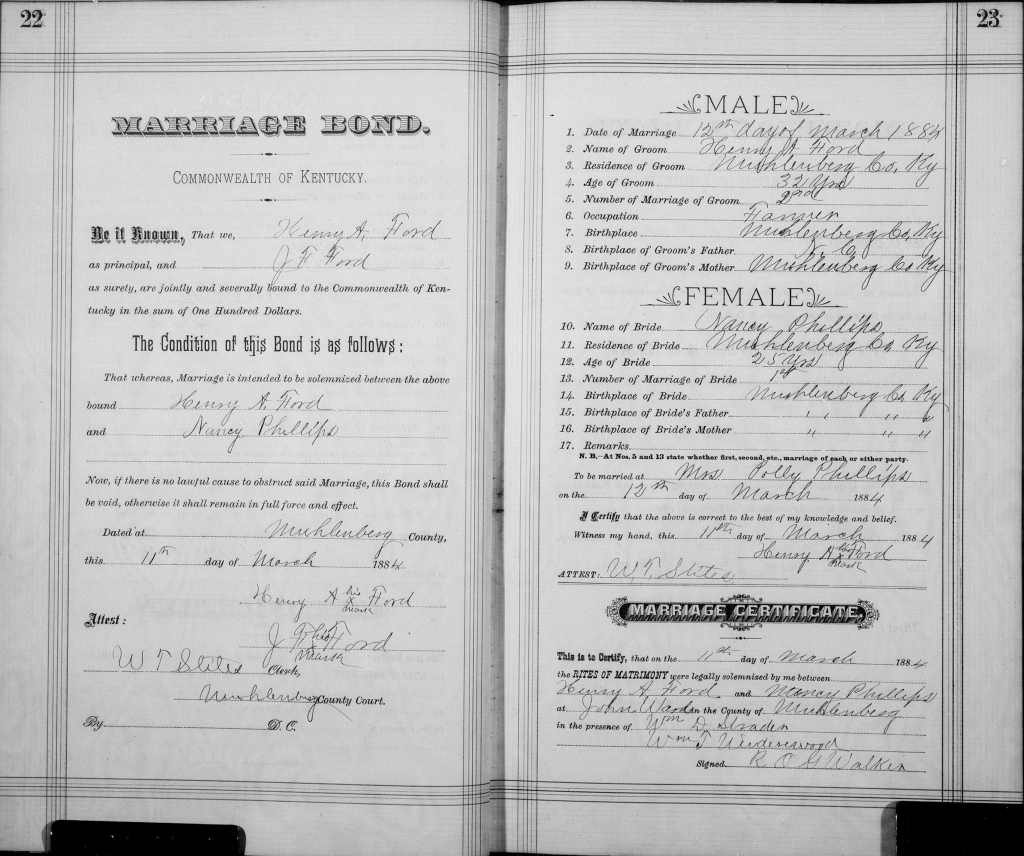 22
MARRIAGE BOND.
COMMONWEALTH OF KENTUCKY.
Be it Known, That we, Henry A. Ford
as principal, and J F Ford
as surety, are jointly and severally bound to the Commonwealth of Ken-
tucky in the sum of One Hundred Dollars.
The Condition of this Bond is as follows:
That whereas, Marriage is intended to be solemnized between the above
bound Henry A. Ford
and Nancy Phillips
Now, if there is no lawful cause to obstruct said Marriage, this Bond shall
be void, otherwise it shall remain in full force and effect.
Dated at Muhlenberg County,
this 11th day of March 1884
Henry A his x mark Ford
Attest:
J F his x mark Ford
W T Stiles Clerk,
Muhlenberg County Court.
By D. C.
23
MALE
1. Date of Marriage 12th day of March 1884
2. Name of Groom Henry A Ford
3. Residence of Groom Muhlenberg Co, Ky
4. Age of Groom 32 Yrs
5. Number of Marriage of Groom 2nd
6. Occupation Farmer
7. Birthplace Muhlenberg Co, Ky
8. Birthplace of Groom's Father N. C.
9. Birthplace of Groom's Mother Muhlenberg Co Ky
FEMALE
10. Name of Bride Nancy Phillips
11. Residence of Bride Muhlenberg Co, Ky
12. Age of Bride 25 Yrs
13. Number of Marriage of Bride 1st
14. Birthplace of Bride Muhlenberg Co, Ky
15. Birthplace of Bride's Father " " "
16. Birthplace of Bride's Mother " " "
17. Remarks
N. B.—At Nos. 5 and 13 state whether first, second, etc., marriage of each or either party.
To be married at Mrs Polly Phillips
on the 12th day of March 1884
I Certify that the above is correct to the best of my knowledge and belief.
Witness my hand, this 11th day of March 1884
Henry A his x mark Ford
ATTEST: W. T. Stiles
MARRIAGE CERTIFICATE.
This is to Certify, that on the 11th day of March 1884
the RITES OF MATRIMONY were legally solemnized by me between
Henry A. Ford and Nancy Phillips
at John Wards in the County of Muhlenberg
in the presence of Wm D. Straden
Wm T Underwood
Signed R O G Walker